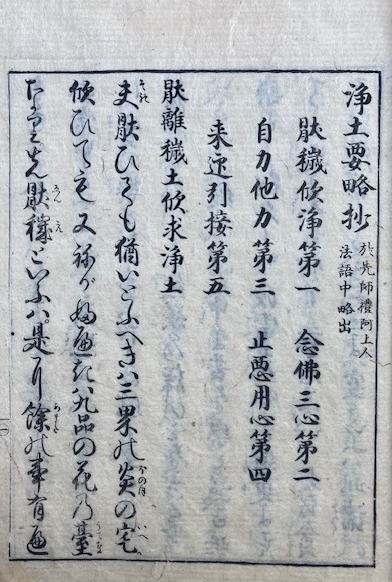 浄土要略抄 於先師禮阿上人
法語中略出
猒穢欣浄第一 念佛三心第二
自力他力第三 止悪用心第四
来迎引接第五
猒離穢土欣求浄土
夫猒ひても猶いとふへきハ三界の炎の宅
欣ひても又ねがふ遍きハ九品の花乃臺
猒穢といふハ是餘の事有遍